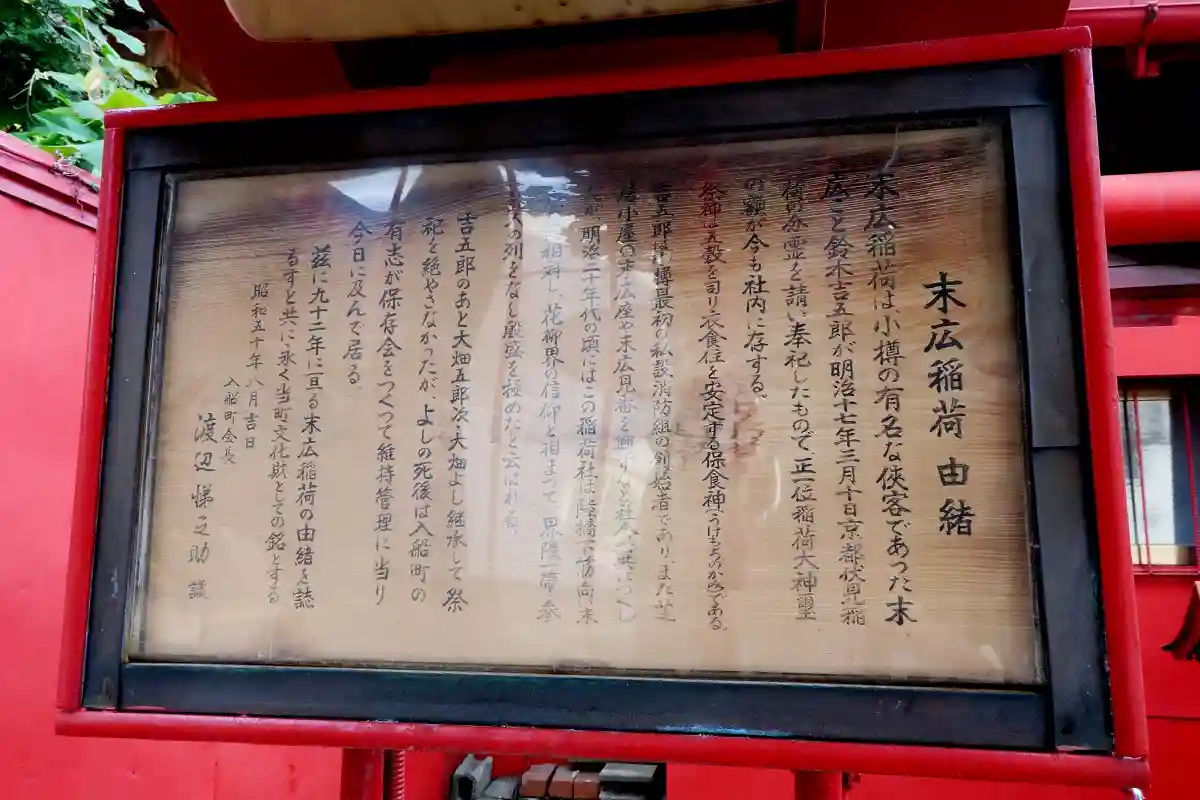 末広稲荷 由緒
末広稲荷は、小樽の有名な侠客であった末
広こと鈴木吉五郎が明治十七年三月十日京都伏見稲
荷の分霊を請い奉祀したもので、正一位稲荷大神璽
の額が今も社内に存する。
祭神は五穀を司り衣食住を安定する保食神(うけもちのかみ)である。
吉五郎は小樽最初の私設消防組の創始者であり、また芝
居小屋の末広座や末広見番を
明治二十年代の頃にはこの稲荷社は陸橋下方向、末
相対し、花柳界の信仰と相まって、界隈一帯、参
の列をなし殷盛を極めたと云はれる。
吉五郎のあと大畑五郎次・大畑よし継承して祭
祀を絶やさなかったが、よしの死後は入船町の
有志が保存会をつくって維持管理に当り
今日に及んで居る。
茲に九十二年に亘る末広稲荷の由緒を誌
るすと共に永く当町文化財としての銘とする
昭和五十年八月吉日
入船町会長
渡辺悌之助 誌